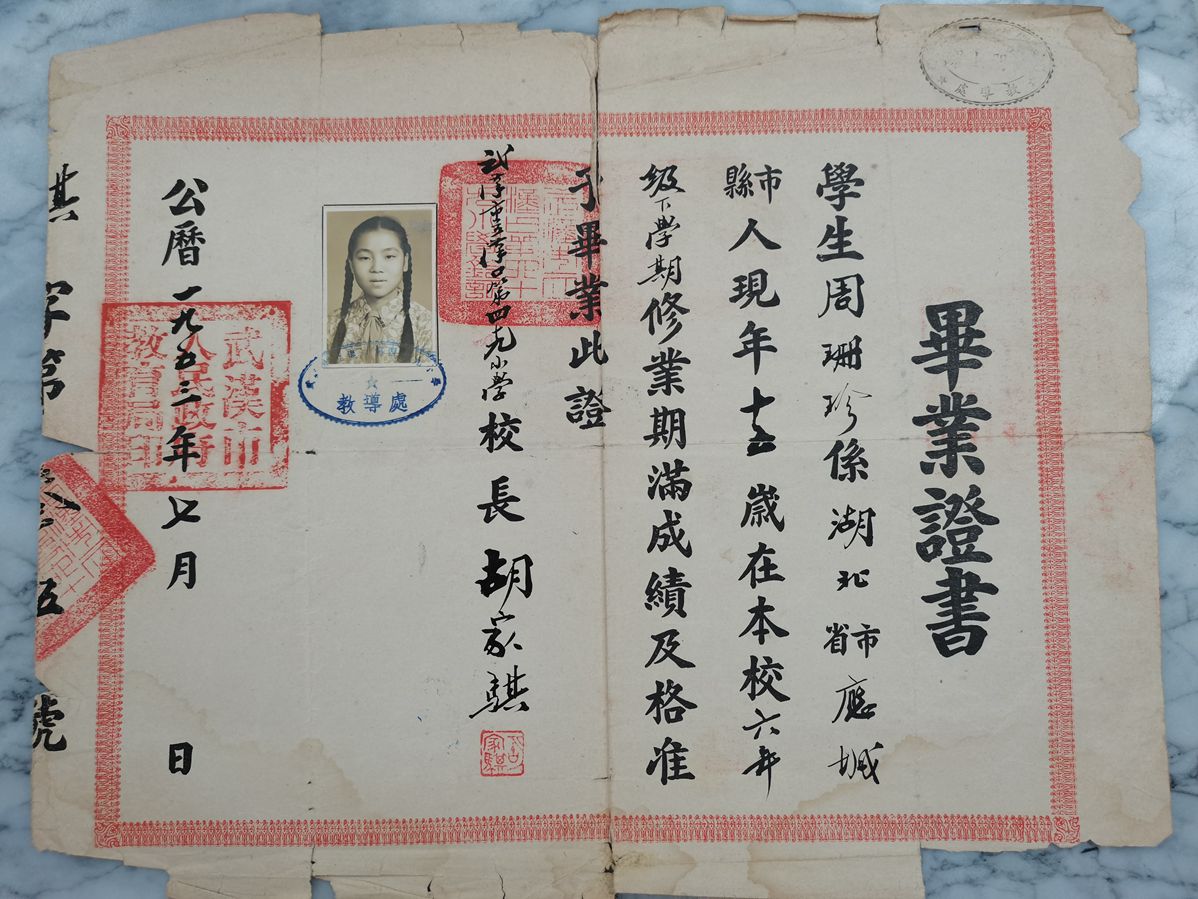 畢業證書
學生周珊珍係湖北省市應城
縣市人現年十五歲在本校六年
級下學期修業期滿成績及格准
予畢業此證
第四九小学校長胡家騏
教導處
公曆一九五三年七月 日
武漢市人民政府教育局印
字第 號
教導處